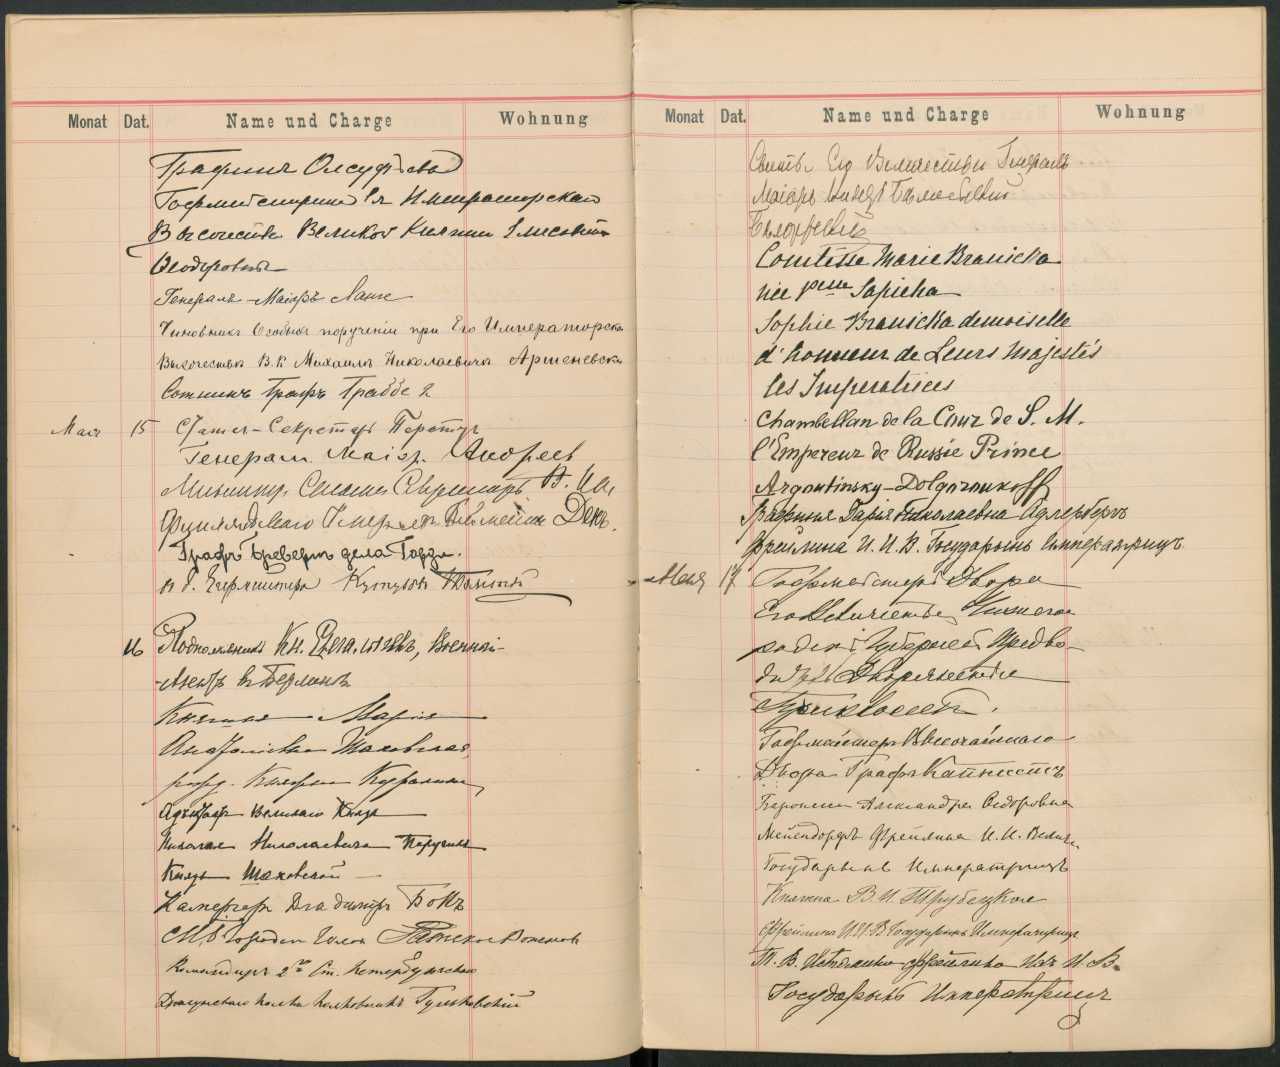 Monat Dat. Name und Charge Wohnung
Графиня Олсуфьева
Гофмейстерина Ея Императорскаго
Высочества Великой Княгини Елисаветы
Ѳеодоровны
Генералъ-Маіоръ
Чиновникъ Особыхъ порученій при Его Императорск.
Высочествѣ В. К. Михаилѣ Николаевичѣ
Сотникъ Графъ Граббе 2
Мая 15 Статсъ-Секретарь
Генерал. Маіор. Андреев
Министр Статсъ Секретарь В. К.
Финляндскаго Генерал Ден.
Графъ Бреверъ де ла Гарди.
в д. Егермейстера
16 Подполковникъ Кн. Военный
Агентъ въ Берлинѣ
Княгиня Марія
Анатоліевна Шаховская,
рожд. Княжна Куракина
Адъютант Великаго Князя
Николая Николаевича
Князь Шаховской
Камергер Владимір
Командиръ 2го С. Петербургскаго
Драгунскаго полка Полковникъ
Monat Dat. Name und Charge Wohnung
Свиты Его Величества Генералъ
Маіоръ Князь Бѣлосельскій
Бѣлозерскій
Comtesse Marie Branicka
née Psse Sapieha
Sophie Branicka demoiselle
d'honneur de Leurs Majestés
les Imperatrices
Chambellan de la Cour de S. M.
l'Empereur de Russie Prince
Argoutinsky-Dolgoroukoff
Графиня Дарія Николаевна Адлербергъ
Фрейлина И. И. В. Государынь Императрицъ
Мая 17 Гофмейстер Двора
Его Величества Нижего-
родскій Губернск Предво-
дит Дворянства
Гофмейстеръ Высочайшаго
Двора Графъ Капнистъ
Баронесса Александра Ѳедоровна
Мейендорфъ Фрейлина И. И. Велич.
Государынь Императрицъ
Княжна В. И. Трубецкая
Фрейлина И. И. В. Государынь Императрицъ
Т. В. фрейлина Ихъ И. В.
Государынь Императрицъ